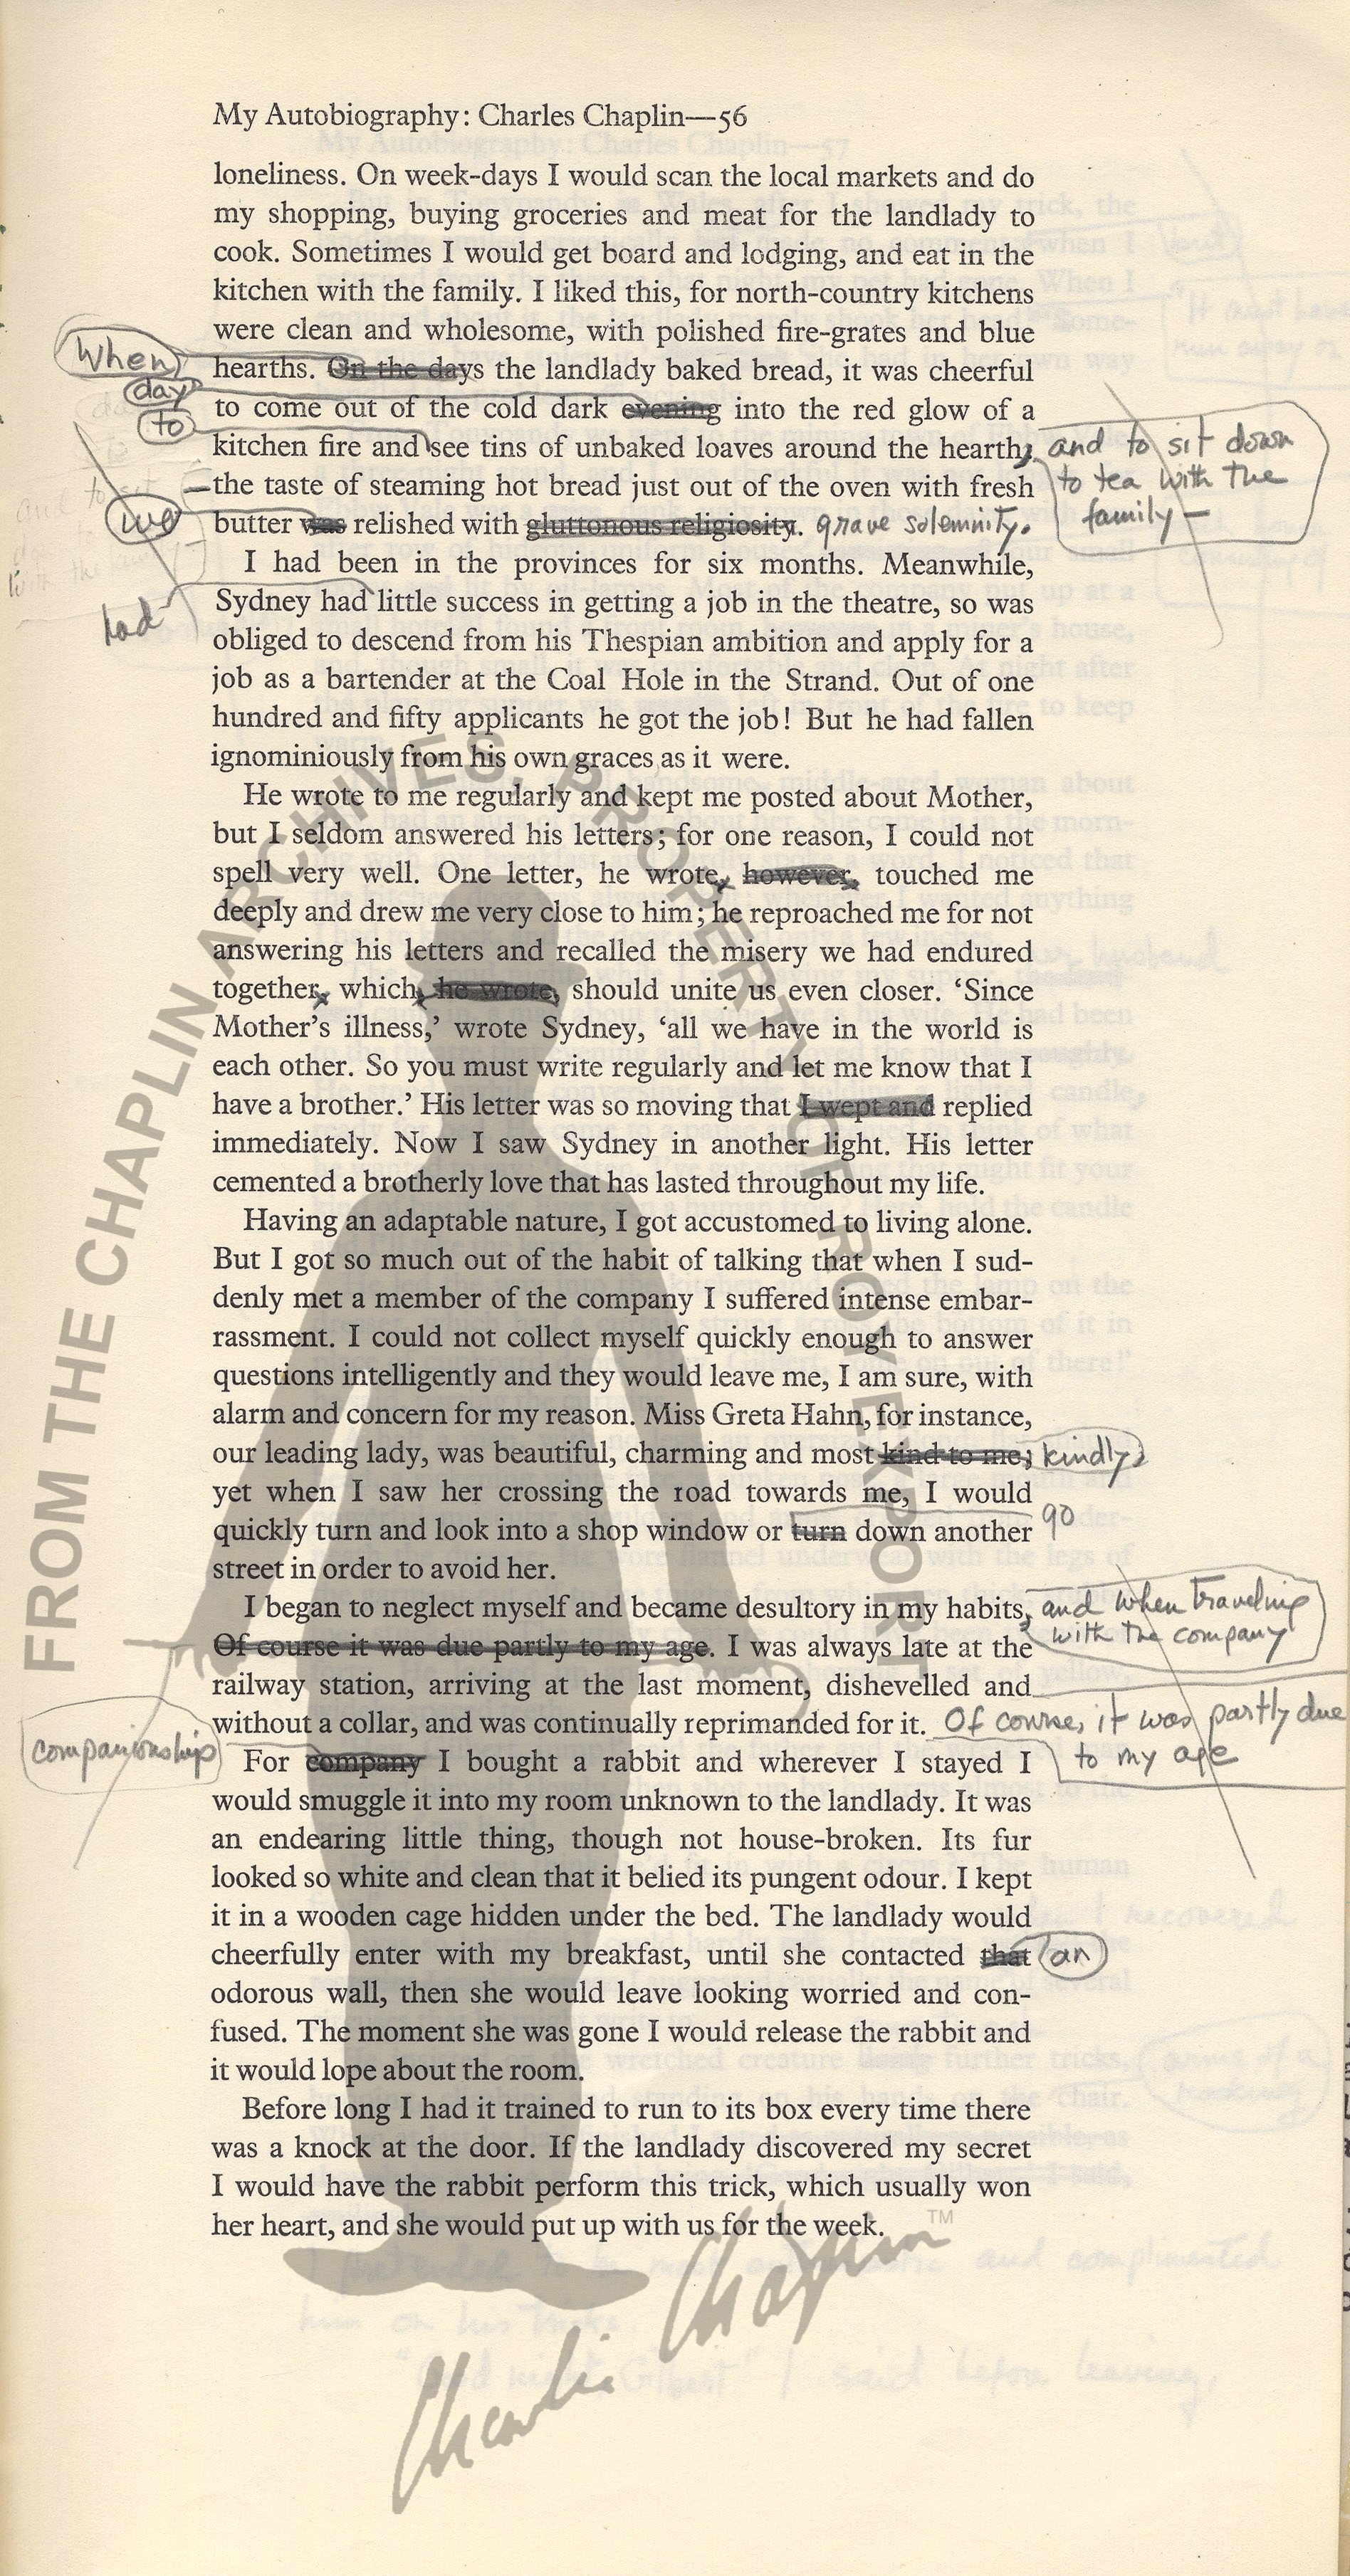 My Autobiography: Charles Chaplin—56
loneliness. On week-days I would scan the local markets and do
my shopping, buying groceries and meat for the landlady to
cook. Sometimes I would get board and lodging, and eat in the
kitchen with the family. I liked this, for north-country kitchens
were clean and wholesome, with polished fire-grates and blue
When
hearths. On the days the landlady baked bread, it was cheerful
day
to come out of the cold dark evening into the red glow of a
to
kitchen fire and see tins of unbaked loaves around the hearth; and to sit down
—the taste of steaming hot bread just out of the oven with fresh to tea with the
we butter was relished with gluttonous religiosity. grave solemnity. family—
I had been in the provinces for six months. Meanwhile,
had Sydney had little success in getting a job in the theatre, so was
obliged to descend from his Thespian ambition and apply for a
job as a bartender at the Coal Hole in the Strand. Out of one
hundred and fifty applicants he got the job! But he had fallen
ignominiously from his own graces as it were.
He wrote to me regularly and kept me posted about Mother,
but I seldom answered his letters; for one reason, I could not
spell very well. One letter, he wrote, however, touched me
deeply and drew me very close to him; he reproached me for not
answering his letters and recalled the misery we had endured
together, which, he wrote, should unite us even closer. ‘Since
Mother’s illness,’ wrote Sydney, ‘all we have in the world is
each other. So you must write regularly and let me know that I
have a brother.’ His letter was so moving that I wept and replied
immediately. Now I saw Sydney in another light. His letter
cemented a brotherly love that has lasted throughout my life.
Having an adaptable nature, I got accustomed to living alone.
But I got so much out of the habit of talking that when I sud-
denly met a member of the company I suffered intense embar-
rassment. I could not collect myself quickly enough to answer
questions intelligently and they would leave me, I am sure, with
alarm and concern for my reason. Miss Greta Hahn, for instance,
our leading lady, was beautiful, charming and most kind to me; kindly;
yet when I saw her crossing the road towards me, I would
quickly turn and look into a shop window or turn down another go
street in order to avoid her.
I began to neglect myself and became desultory in my habits, and when traveling
with the company
Of course it was due partly to my age. I was always late at the
railway station, arriving at the last moment, dishevelled and
without a collar, and was continually reprimanded for it. Of course, it was partly due
to my age
companionship
For company I bought a rabbit and wherever I stayed I
would smuggle it into my room unknown to the landlady. It was
an endearing little thing, though not house-broken. Its fur
looked so white and clean that it belied its pungent odour. I kept
it in a wooden cage hidden under the bed. The landlady would
cheerfully enter with my breakfast, until she contacted that an
odorous wall, then she would leave looking worried and con-
fused. The moment she was gone I would release the rabbit and
it would lope about the room.
Before long I had it trained to run to its box every time there
was a knock at the door. If the landlady discovered my secret
I would have the rabbit perform this trick, which usually won
her heart, and she would put up with us for the week.
FROM THE CHAPLIN ARCHIVES, PROPERTY OF ROY EXPORT
Charlie Chaplin™